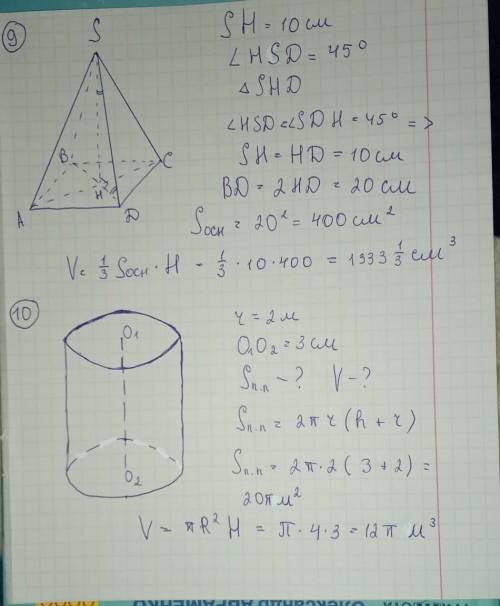 9
S
A
B
C
D
H
SH = 10 см
∠HSD = 45°
△SHD
∠HSD = ∠SDH = 45° =>
SH = HD = 10 см
BD = 2HD = 20 см
Sосн = 20² = 400 см²
V = 1/3 Sосн · H - 1/3 · 10 · 400 = 1333 1/3 см³
10
O1
O2
r = 2 м
O1O2 = 3 см
Sп.п - ? V - ?
Sп.п = 2πr (h + r)
Sп.п = 2π · 2 ( 3 + 2) =
20π м²
V = πR² H = π · 4 · 3 = 12π м³
Олександр АВРАМЕНКО